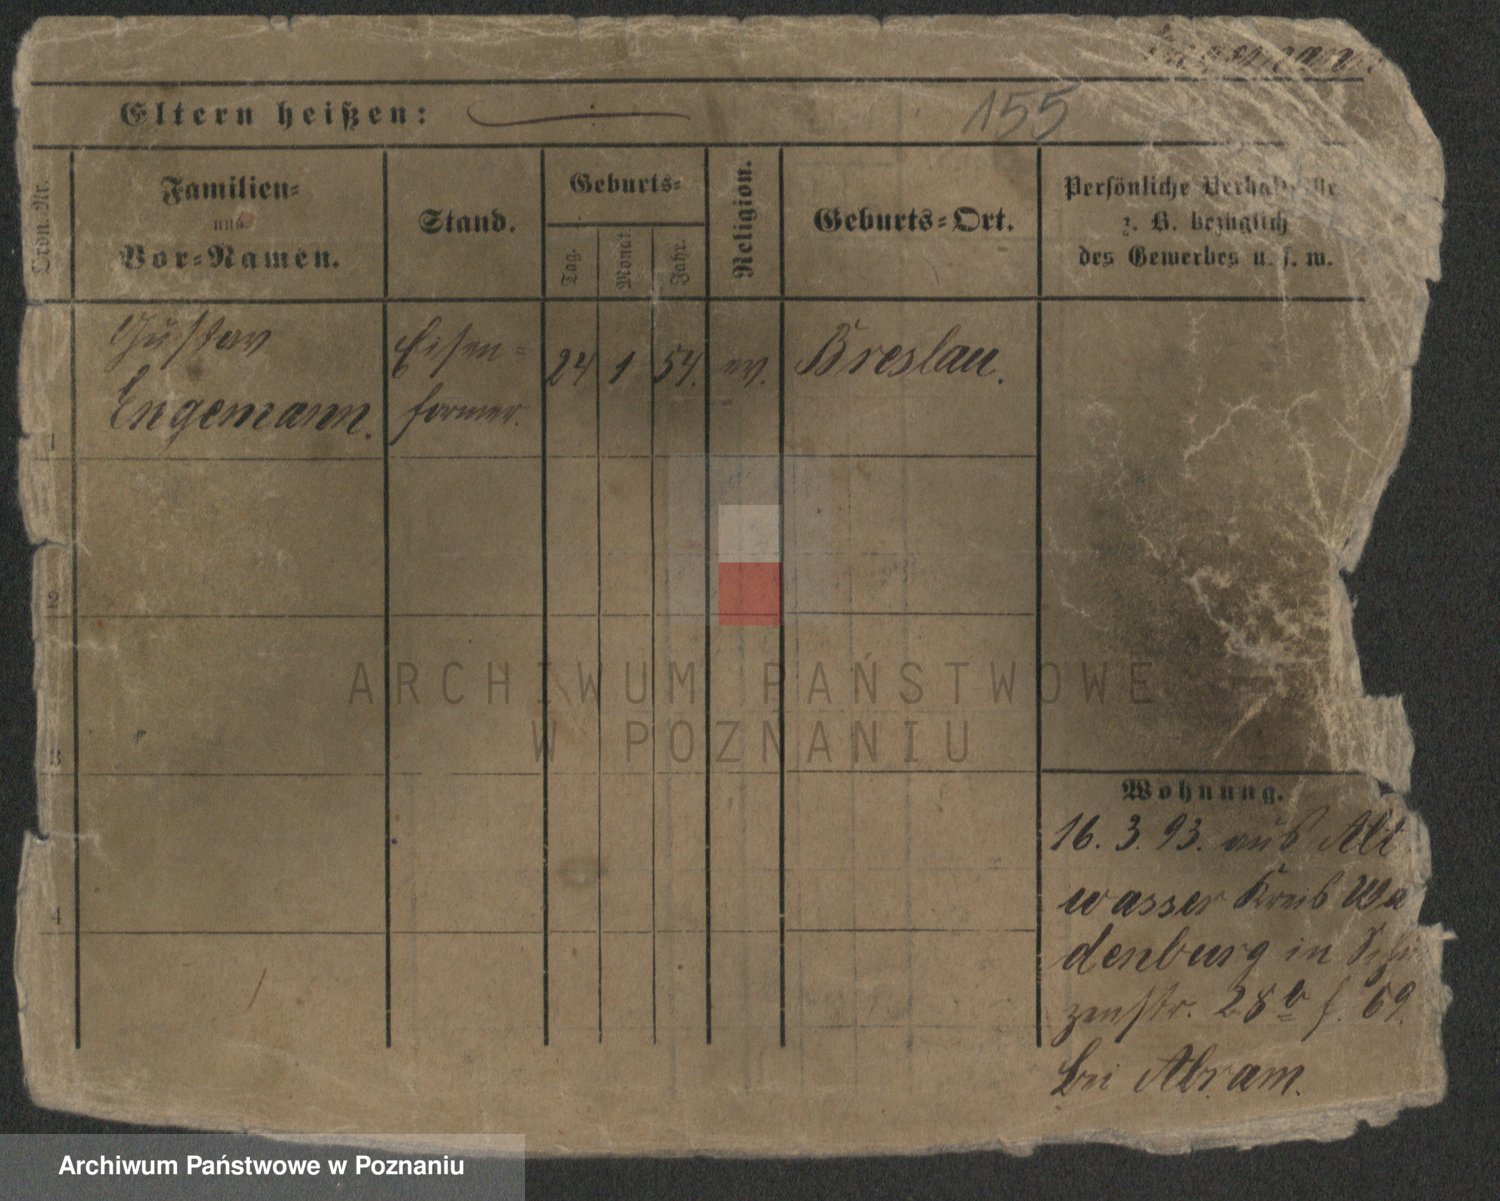 Engemann.
Eltern heißen:
155
Lfde.-Nr.
Familien-
und
Vor-Namen.
Stand.
Geburts-
Tag.
Monat.
Jahr.
Religion.
Geburts-Ort.
Persönliche Verhältnisse
z. B. bezüglich
des Gewerbes u. s. w.
Gustav
Engemann.
Eisen-
former.
24
1
54.
ev.
Breslau.
1
2
3
4
ARCHIWUM PAŃSTWOWE
W POZNANIU
Wohnung.
16. 3. 93. aus Alt
wasser Kreis Wa
denburg in Schü
zenstr. 28b f. 69.
bei Abram.
Archiwum Państwowe w Poznaniu